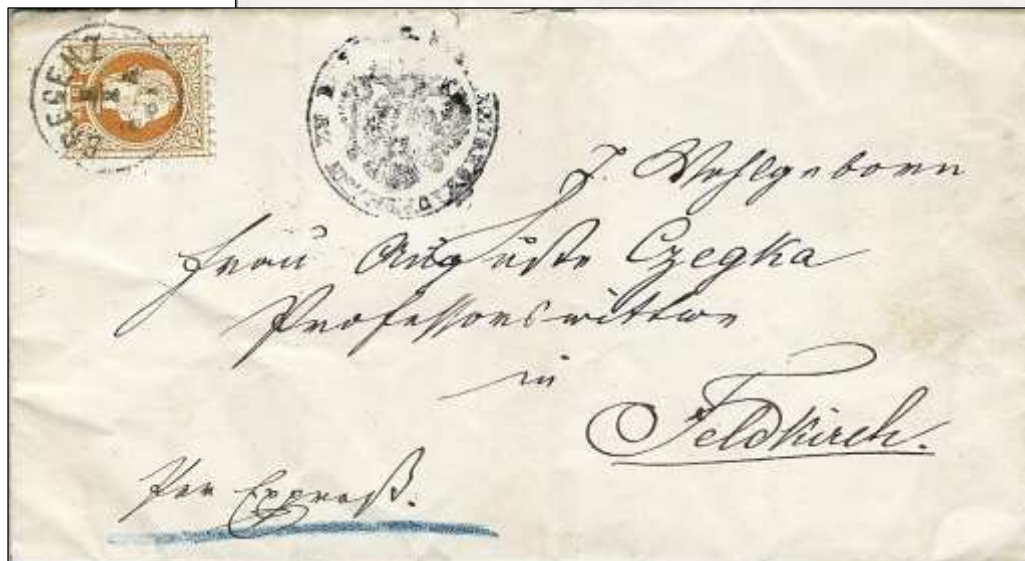 BREGENZ
J. Wohlgeborn
Frau Auguste Czegka
Professorswittwe
in
Feldkirch.
Per Expreß.